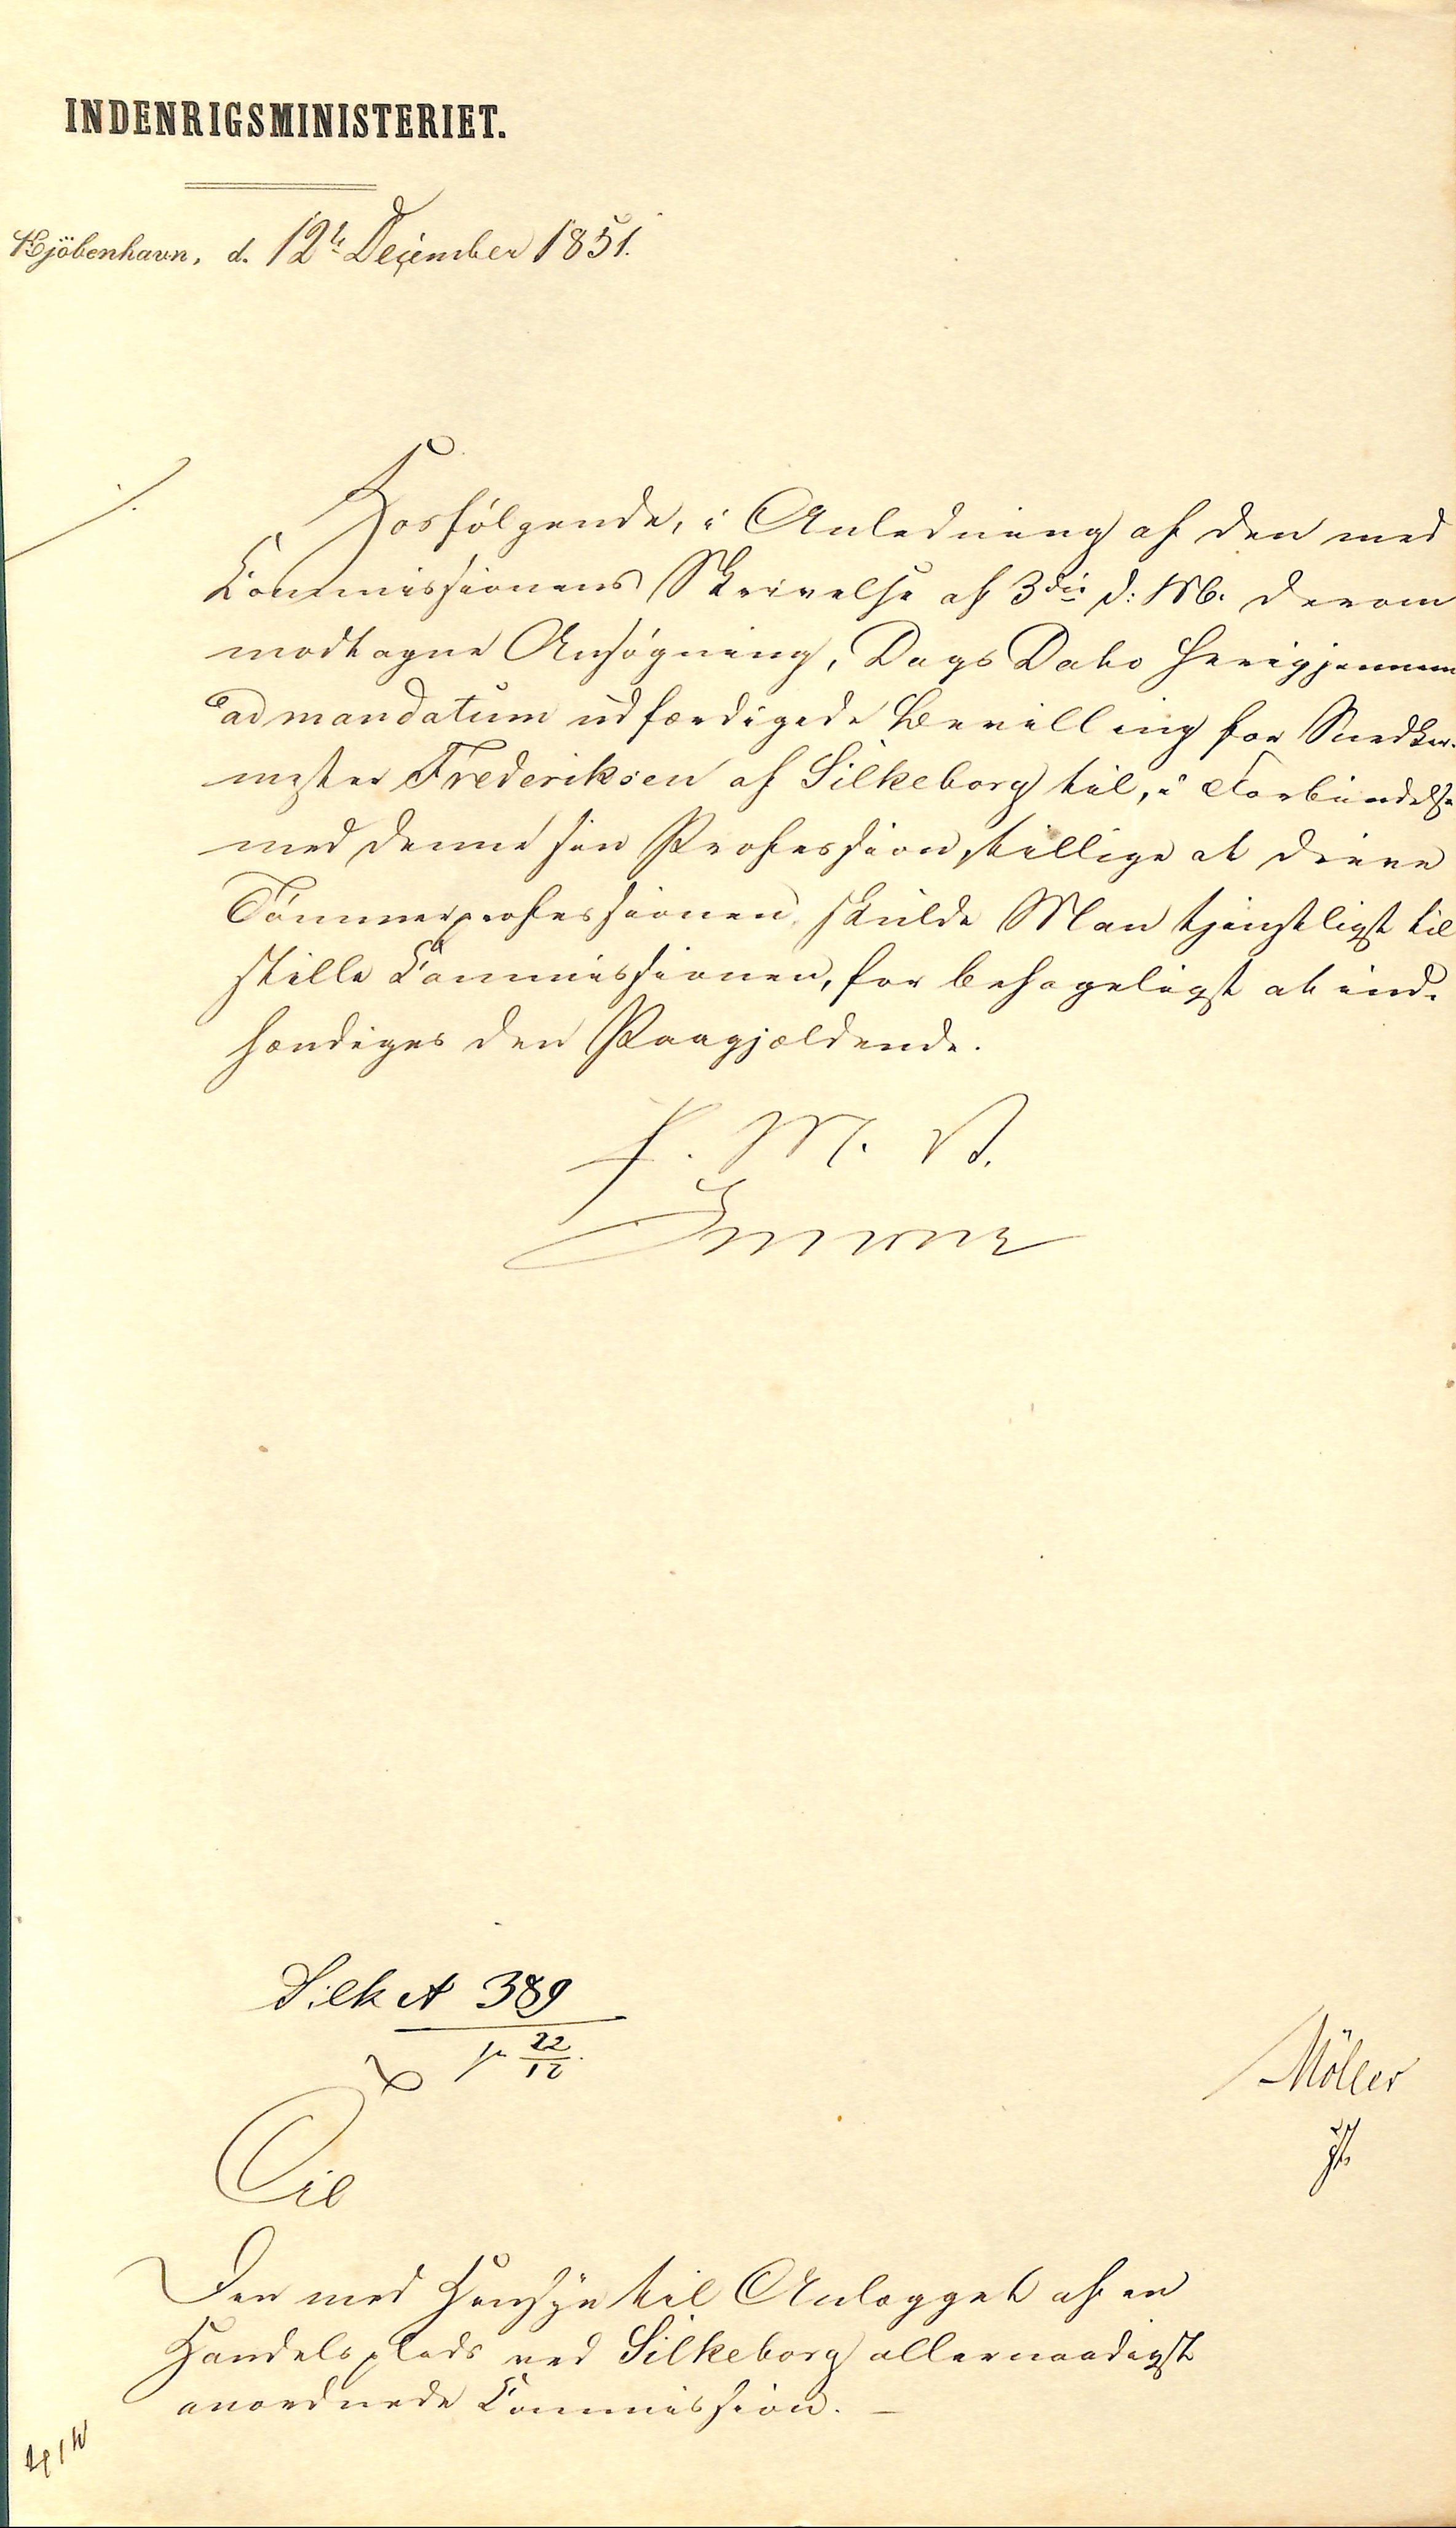 INDENRIGSMINISTERIET.
Kjöbenhavn, d. 12te December 1851.
Hosfølgende, i Anledning af den med
Commissionens Skrivelse af 3die d: M. derom
modtagne Ansøgning, Dags Dato herigjennem
ad mandatum udfærdigede Bevilling for Snedker-
mester Frederiksen af Silkeborg til, i Forbindelse
med denne sin Profession, tillige at drive
Tømmerprofessionen skulde Man tjenstligst til
stille Commissionen, for behageligst at ind-
hændiges den Paagjældende.
F. M. V.
Silk A 389
22
12
Möller
Til
Den med Hensyn til Anlægget af en
Handelsplads ved Silkeborg allernaadigst
anordnede Commission.